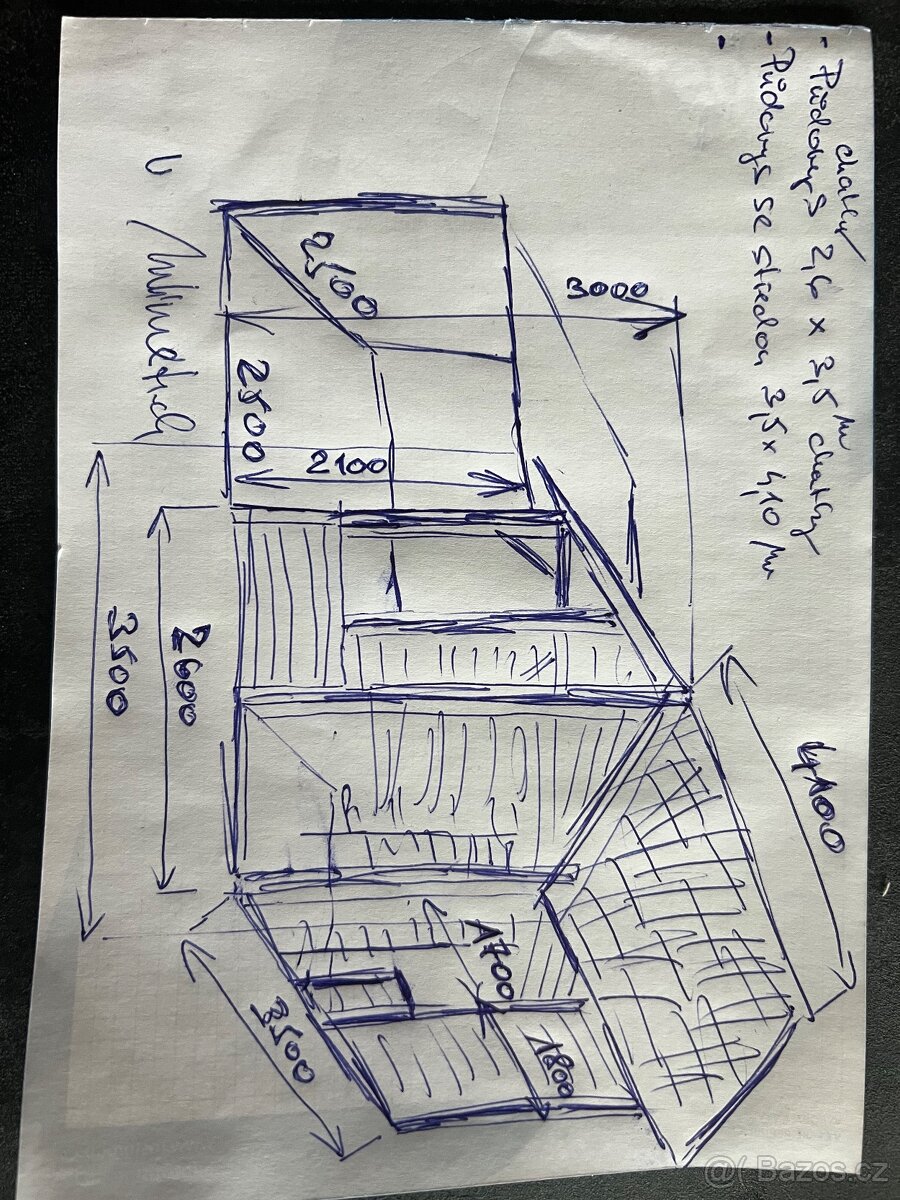 chatky
- Půdorys 2,6 x 3,5 m chatky
- Půdorys se střechou 3,5 x 4,10 m
4100
3000
1800
1700
2500
2100
2500
3500
2600
3500
V milimetrech
@( Bazos.cz